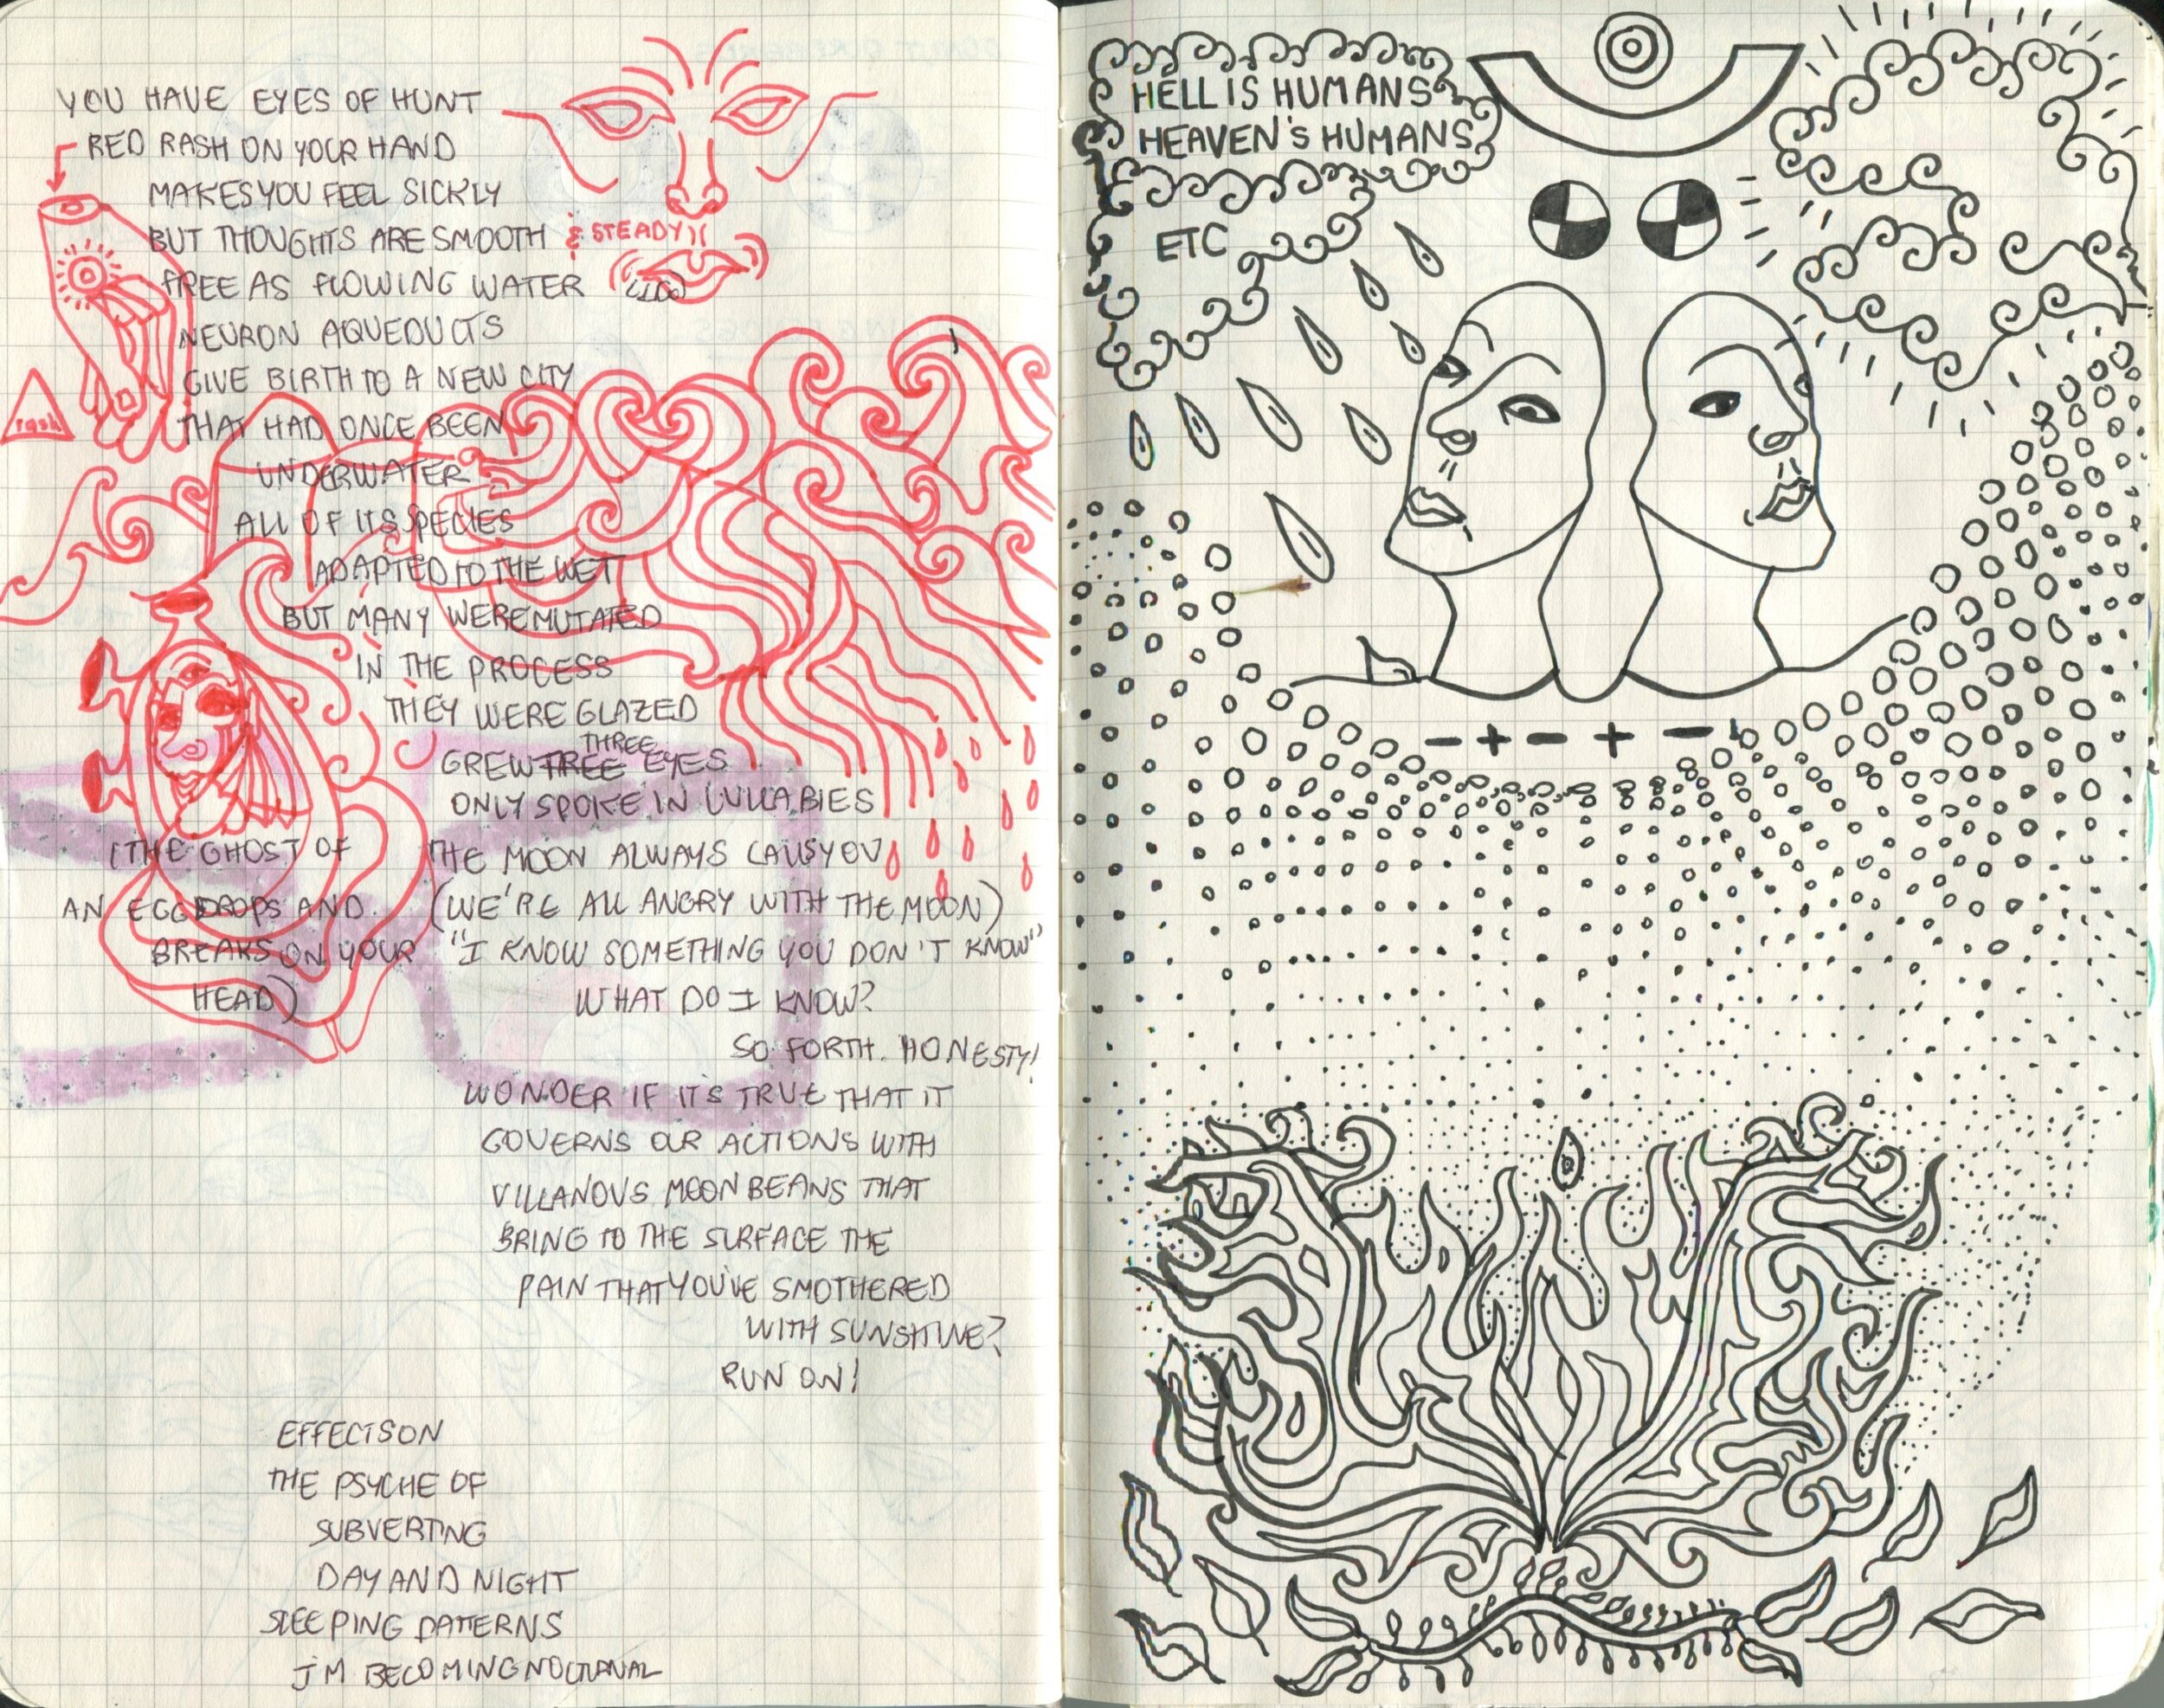 YOU HAVE EYES OF HUNT
RED RASH ON YOUR HAND
MAKES YOU FEEL SICKLY
BUT THOUGHTS ARE SMOOTH & STEADY
FREE AS FLOWING WATER
NEURON AQUEDUCTS
GIVE BIRTH TO A NEW CITY
rash
THAT HAD ONCE BEEN
UNDERWATER
ALL OF ITS SPECIES
ADAPTED TO THE WET
BUT MANY WERE MUTATED
IN THE PROCESS
THEY WERE GLAZED
THREE
GREW TREE EYES
ONLY SPOKE IN LULLABIES
THE MOON ALWAYS CALLS YOU
(WE'RE ALL ANGRY WITH THE MOON)
"I KNOW SOMETHING YOU DON'T KNOW"
(THE GHOST OF
AN EGG DROPS AND
BREAKS ON YOUR
HEAD)
WHAT DO I KNOW?
SO FORTH. HONESTY!
WONDER IF IT'S TRUE THAT IT
GOVERNS OUR ACTIONS WITH
VILLANOUS MOON BEANS THAT
BRING TO THE SURFACE THE
PAIN THAT YOU'VE SMOTHERED
WITH SUNSHINE?
RUN ON!
EFFECTS ON
THE PSYCHE OF
SUBVERTING
DAY AND NIGHT
SLEEPING PATTERNS
I'M BECOMING NOCTURNAL
HELL IS HUMANS
HEAVEN'S HUMANS
ETC
- + - + -